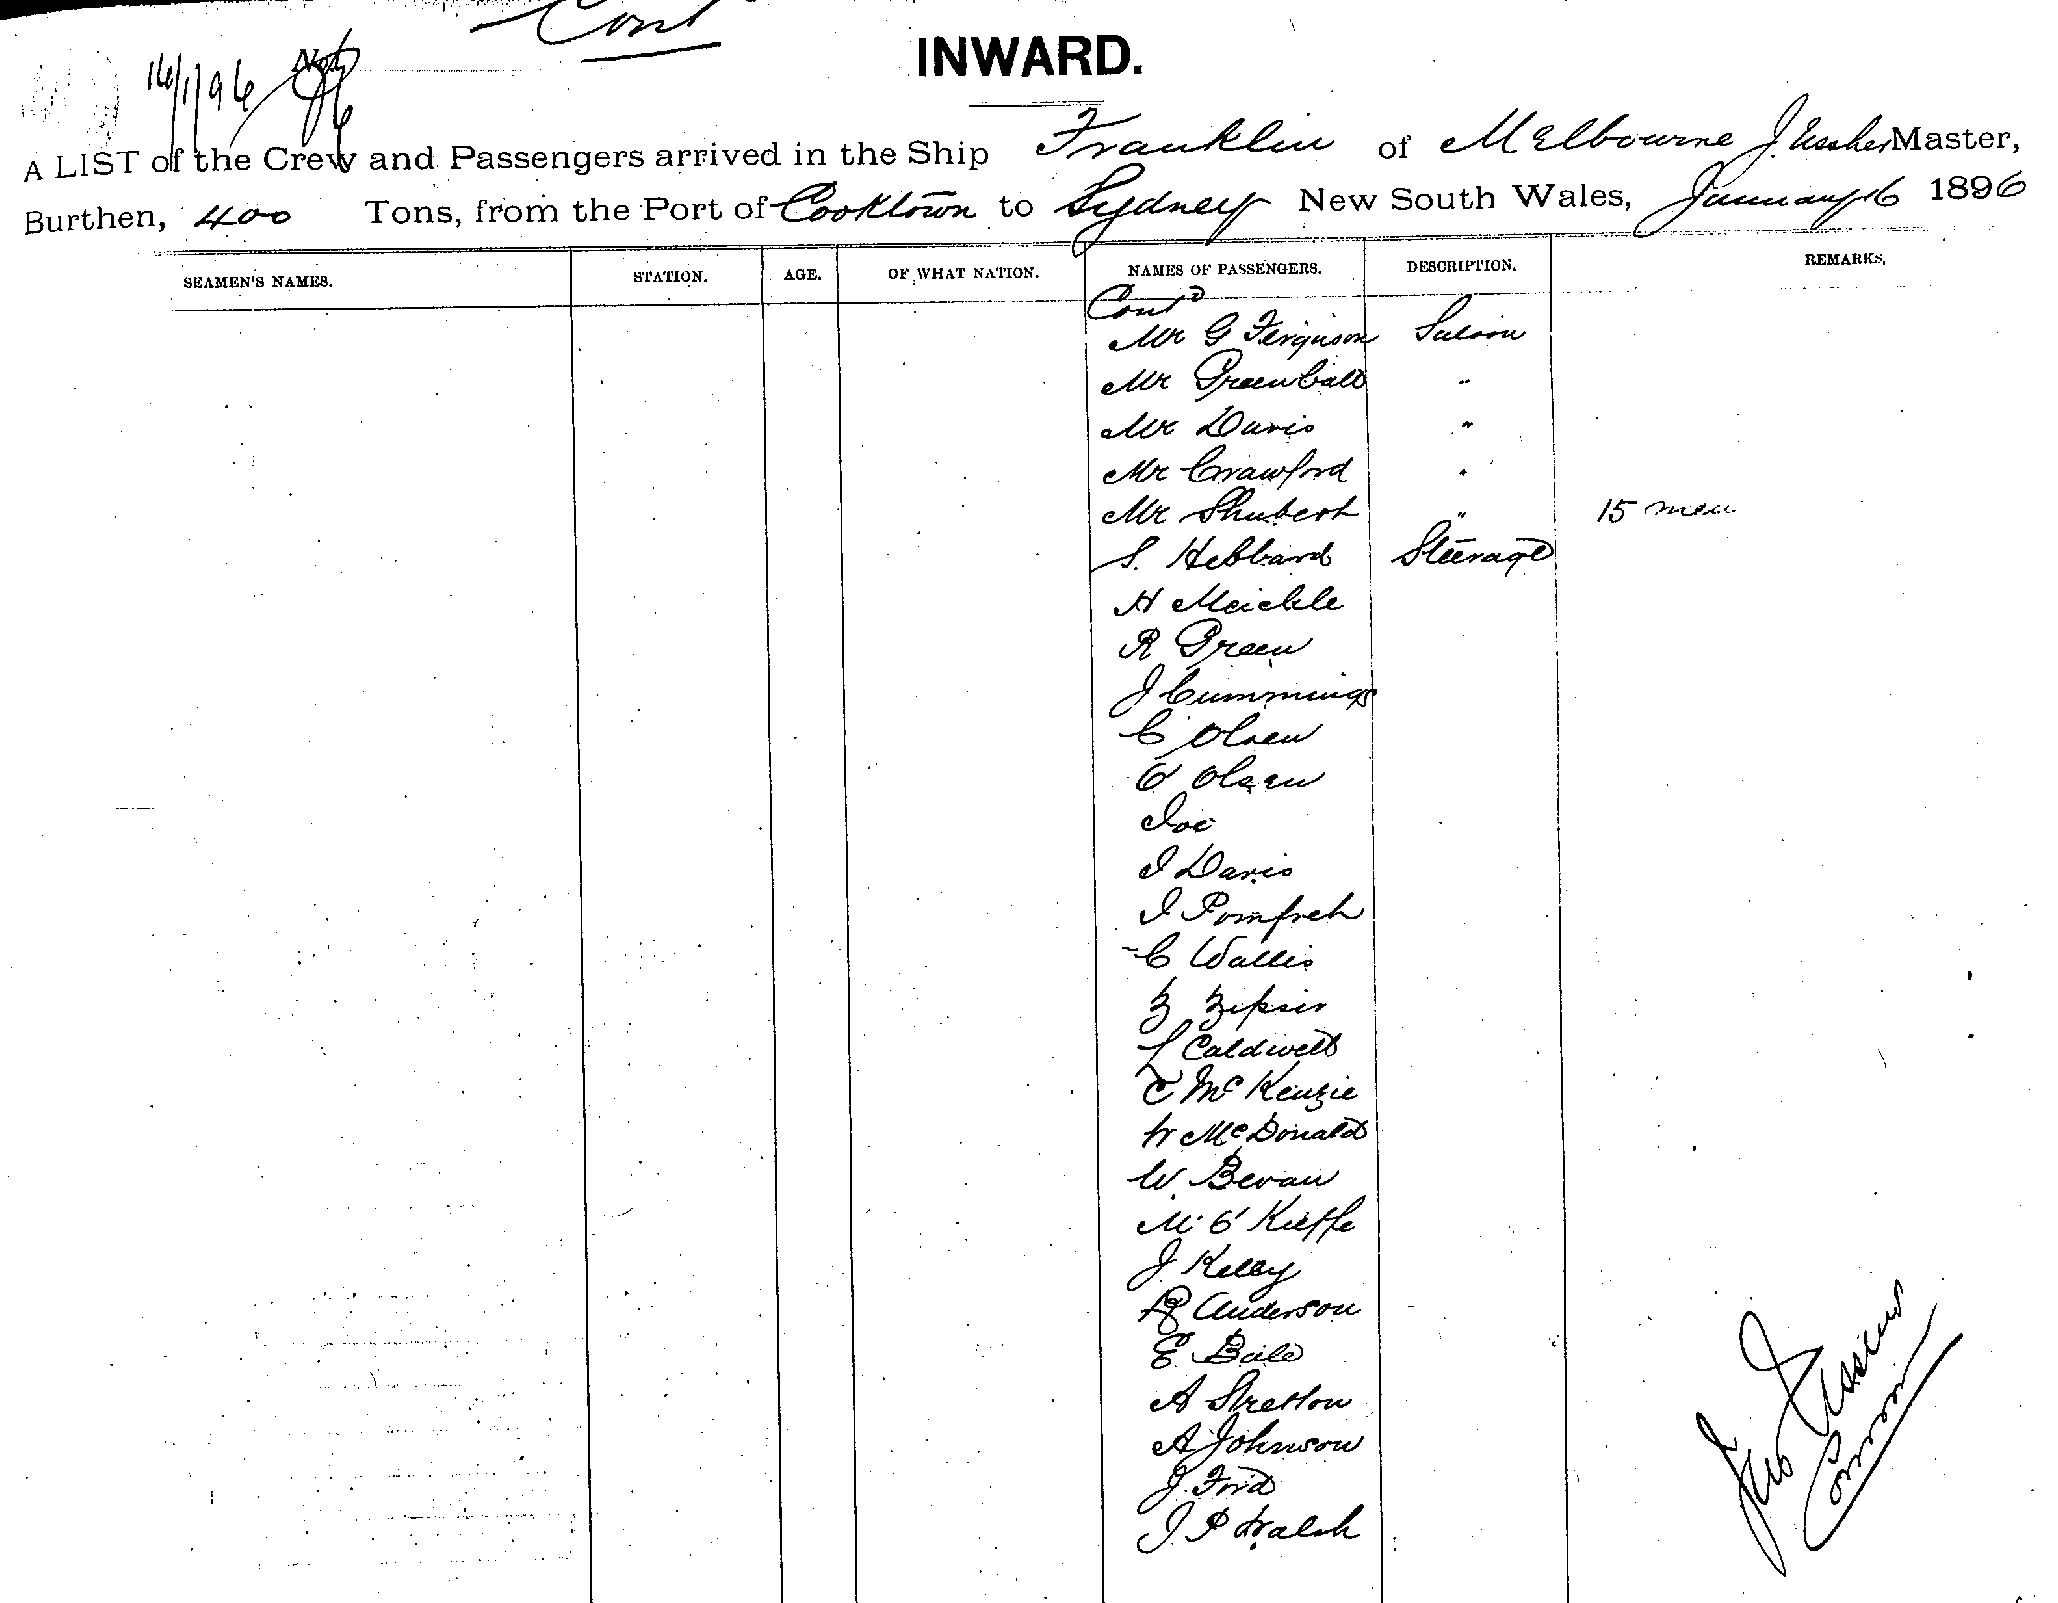 Cont
16/1/96
INWARD.
A LIST of the Crew and Passengers arrived in the Ship Franklin of Melbourne J. Ussher Master,
Burthen, 400 Tons, from the Port of Cooktown to Sydney New South Wales, January 16 1896
SEAMEN'S NAMES. STATION. AGE. OF WHAT NATION. NAMES OF PASSENGERS. DESCRIPTION. REMARKS.
Contd
Mr G Ferguson Saloon
Mr Greenball "
Mr Davis "
Mr Crawford "
Mr Shubert " 15 men
S. Hebbard Steerage
H Meickle
R Green
J Cummings
C Olsen
O Olsen
Joe
J Davis
J Pomfret
C Wallis
Z Zipsir
L Caldwell
C McKenzie
W McDonald
W. Bevan
M. O'Kieffe
J. Kelly
Anderson
E. Bale
A Stretton
A Johnson
J. Ford
J. P Walsh